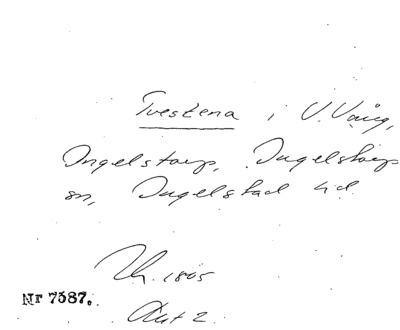 Tvestena i V. Vång,
Ingelstorp, Ingelstorp
sn, Ingelstad hd.
1805
Nr 7387.
Akt 2